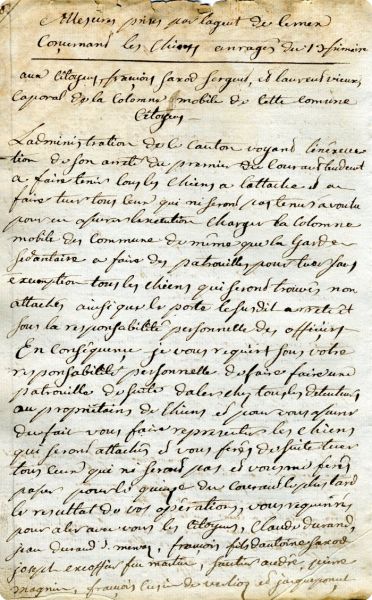 Mesures prises par lagent de lemen
Consernand les Chiens enragés du 13 frimaire
aux Citoyens françois saxod sergent, et laurent vieux
Caporal de la Colonne mobile de Cette Commune
Citoyens
Ladministration de Ce Canton voyand linéxecu
tion de son arrêt du premier du Courand tendent
a faire tenir tous les Chiens a lattache et a
faire tuer tous Ceux qui ne seront pas tenus a voulu
pour en assurer lexecution Charger la Colonne
mobile des Commune de même que la Garde
sedantaire a faire des patrouilles pour tuer sans
exception tous les Chiens qui seront trouvés non
attachés ainsi que le porte le susdit arrete et
sous la responsabilité personnelle des officiers
En Conséquence je vous requiert sous votre
responsabilité personnelle de faire faire une
patrouille de suite daler chez tous les detenteurs
au propriétaire de Chiens et pour vous assurer
du fait vous faire representer les Chiens
qui seront attachés et vous ferés de suite tuer
tous Ceux qui ne seront pas et vous me ferés
passer pour le quinze du Courand le plus tard
le resultat de vos opérations, vous requirrés
pour aler avec vous les Citoyens, Claude durand,
jean durand françois fils dantoine saxod
josept excoffier feu martin, pierre
magnin, françois et jacque